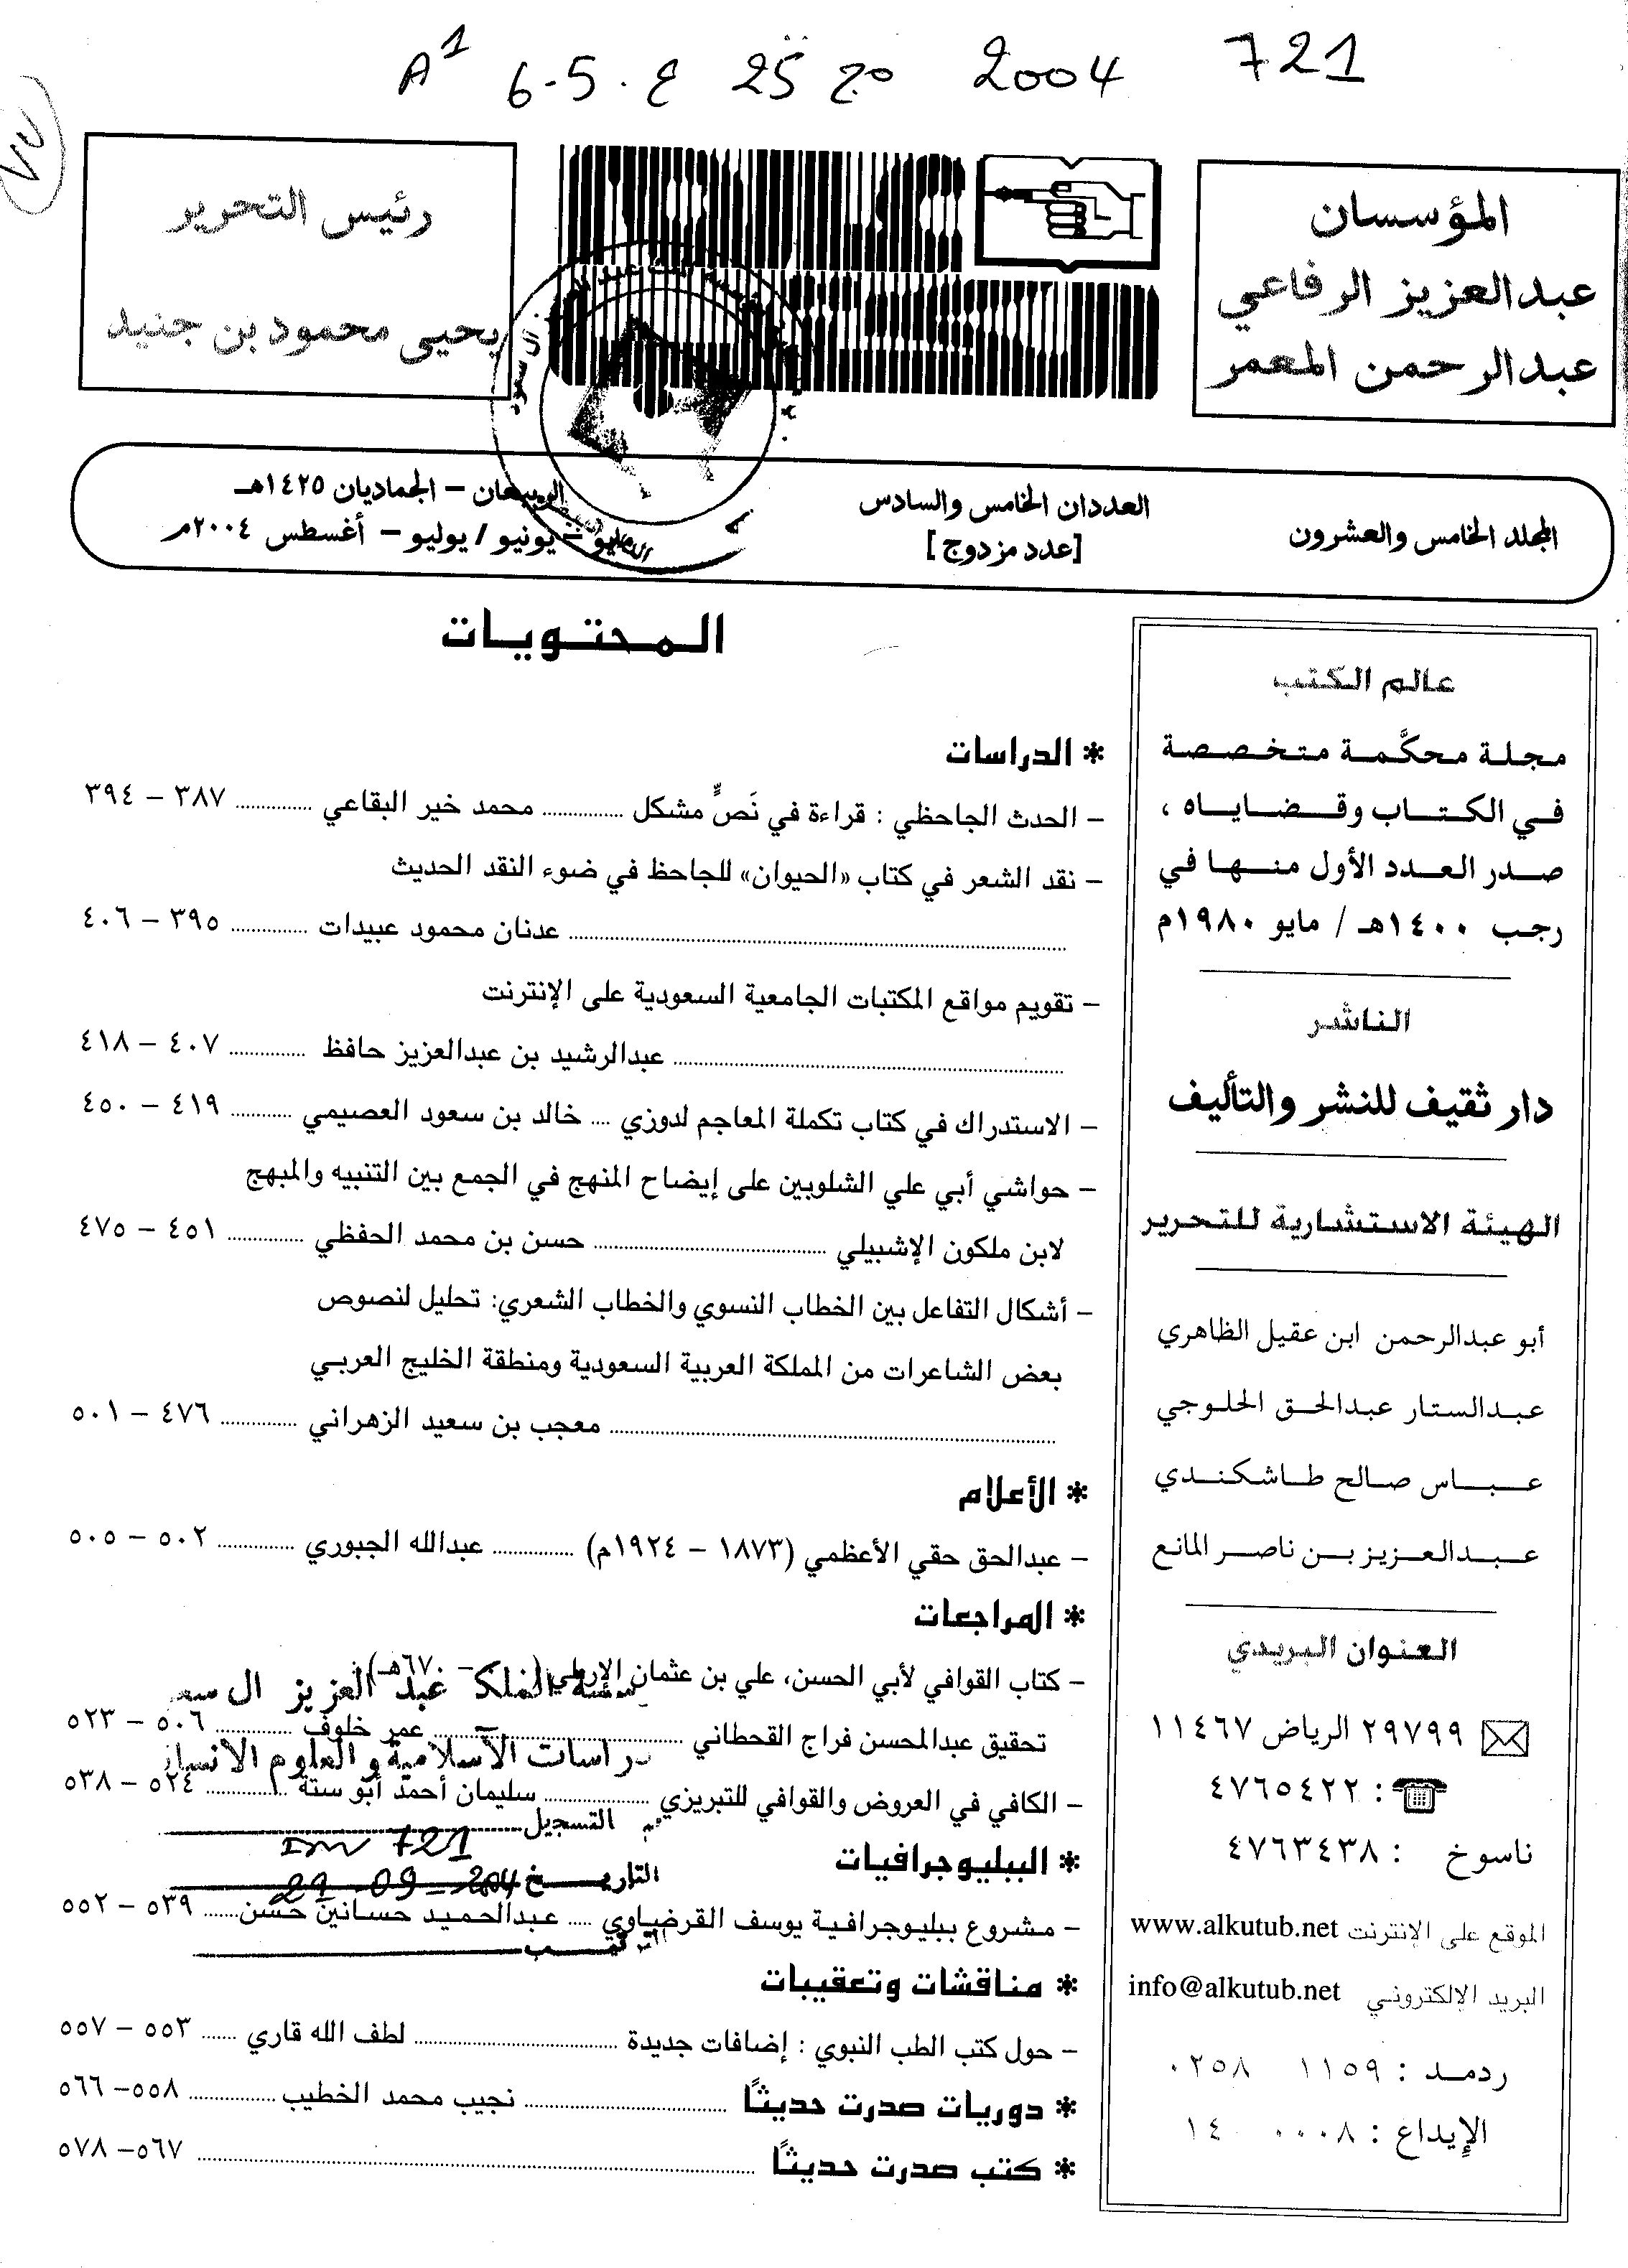 721 2004 مج 25 ع . 5-6 A1
المؤسسان
عبدالعزيز الرفاعي
عبدالرحمن المعمر
رئيس التحرير
يحيى محمود بن جنيد
المجلد الخامس والعشرون
العددان الخامس والسادس
[عدد مزدوج]
الربيعان – الجماديان ١٤٢٥هـ
مايو – يونيو / يوليو – أغسطس ٢٠٠٤م
عالم الكتب
مجلة محكَّمة متخصصة
في الكتاب وقضاياه ،
صدر العدد الأول منها في
رجب ١٤٠٠هـ / مايو ١٩٨٠م
الناشر
دار ثقيف للنشر والتأليف
الهيئة الاستشارية للتحرير
أبو عبدالرحمن ابن عقيل الظاهري
عبدالستار عبدالحق الحلوجي
عباس صالح طاشكندي
عبدالعزيز بن ناصر المانع
العنوان البريدي
٢٩٧٩٩ الرياض ١١٤٦٧
: ٤٧٦٥٤٢٢
ناسوخ : ٤٧٦٣٤٣٨
الموقع على الإنترنت www.alkutub.net
البريد الإلكتروني info@alkutub.net
ردمد : ١١٥٩ ٠٢٥٨
الإيداع : ٠٠٠٨ ١٤
المحتويات
* الدراسات
– الحدث الجاحظي : قراءة في نَصٍّ مشكل ........ محمد خير البقاعي ........ ٣٨٧ – ٣٩٤
– نقد الشعر في كتاب «الحيوان» للجاحظ في ضوء النقد الحديث
........ عدنان محمود عبيدات ........ ٣٩٥ – ٤٠٦
– تقويم مواقع المكتبات الجامعية السعودية على الإنترنت
........ عبدالرشيد بن عبدالعزيز حافظ ........ ٤٠٧ – ٤١٨
– الاستدراك في كتاب تكملة المعاجم لدوزي .... خالد بن سعود العصيمي ........ ٤١٩ – ٤٥٠
– حواشي أبي علي الشلوبين على إيضاح المنهج في الجمع بين التنبيه والمبهج
لابن ملكون الإشبيلي ........ حسن بن محمد الحفظي ........ ٤٥١ – ٤٧٥
– أشكال التفاعل بين الخطاب النسوي والخطاب الشعري: تحليل لنصوص
بعض الشاعرات من المملكة العربية السعودية ومنطقة الخليج العربي
........ معجب بن سعيد الزهراني ........ ٤٧٦ – ٥٠١
* الأعلام
– عبدالحق حقي الأعظمي (١٨٧٣ – ١٩٢٤م) ........ عبدالله الجبوري ........ ٥٠٢ – ٥٠٥
* المراجعات
– كتاب القوافي لأبي الحسن، علي بن عثمان الإربلي ( – ٦٧٠هـ) :
الملك عبد العزيز ال سعو
تحقيق عبدالمحسن فراج القحطاني ........ عمر خلوف ........ ٥٠٦ – ٥٢٣
راسات الاسلامية و العلوم الانسا
– الكافي في العروض والقوافي للتبريزي ........ سليمان أحمد أبو ستة ........ ٥٢٤ – ٥٣٨
التسجيل 721
* الببليوجرافيات
التاريـخ 29-09-2004
– مشروع ببليوجرافية يوسف القرضاوي .... عبدالحميد حسانين حسن ...... ٥٣٩ – ٥٥٢
* مناقشات وتعقيبات
– حول كتب الطب النبوي : إضافات جديدة ........ لطف الله قاري ...... ٥٥٣ – ٥٥٧
* دوريات صدرت حديثاً ........ نجيب محمد الخطيب ........ ٥٥٨– ٥٦٦
* كتب صدرت حديثاً ........ ٥٦٧– ٥٧٨